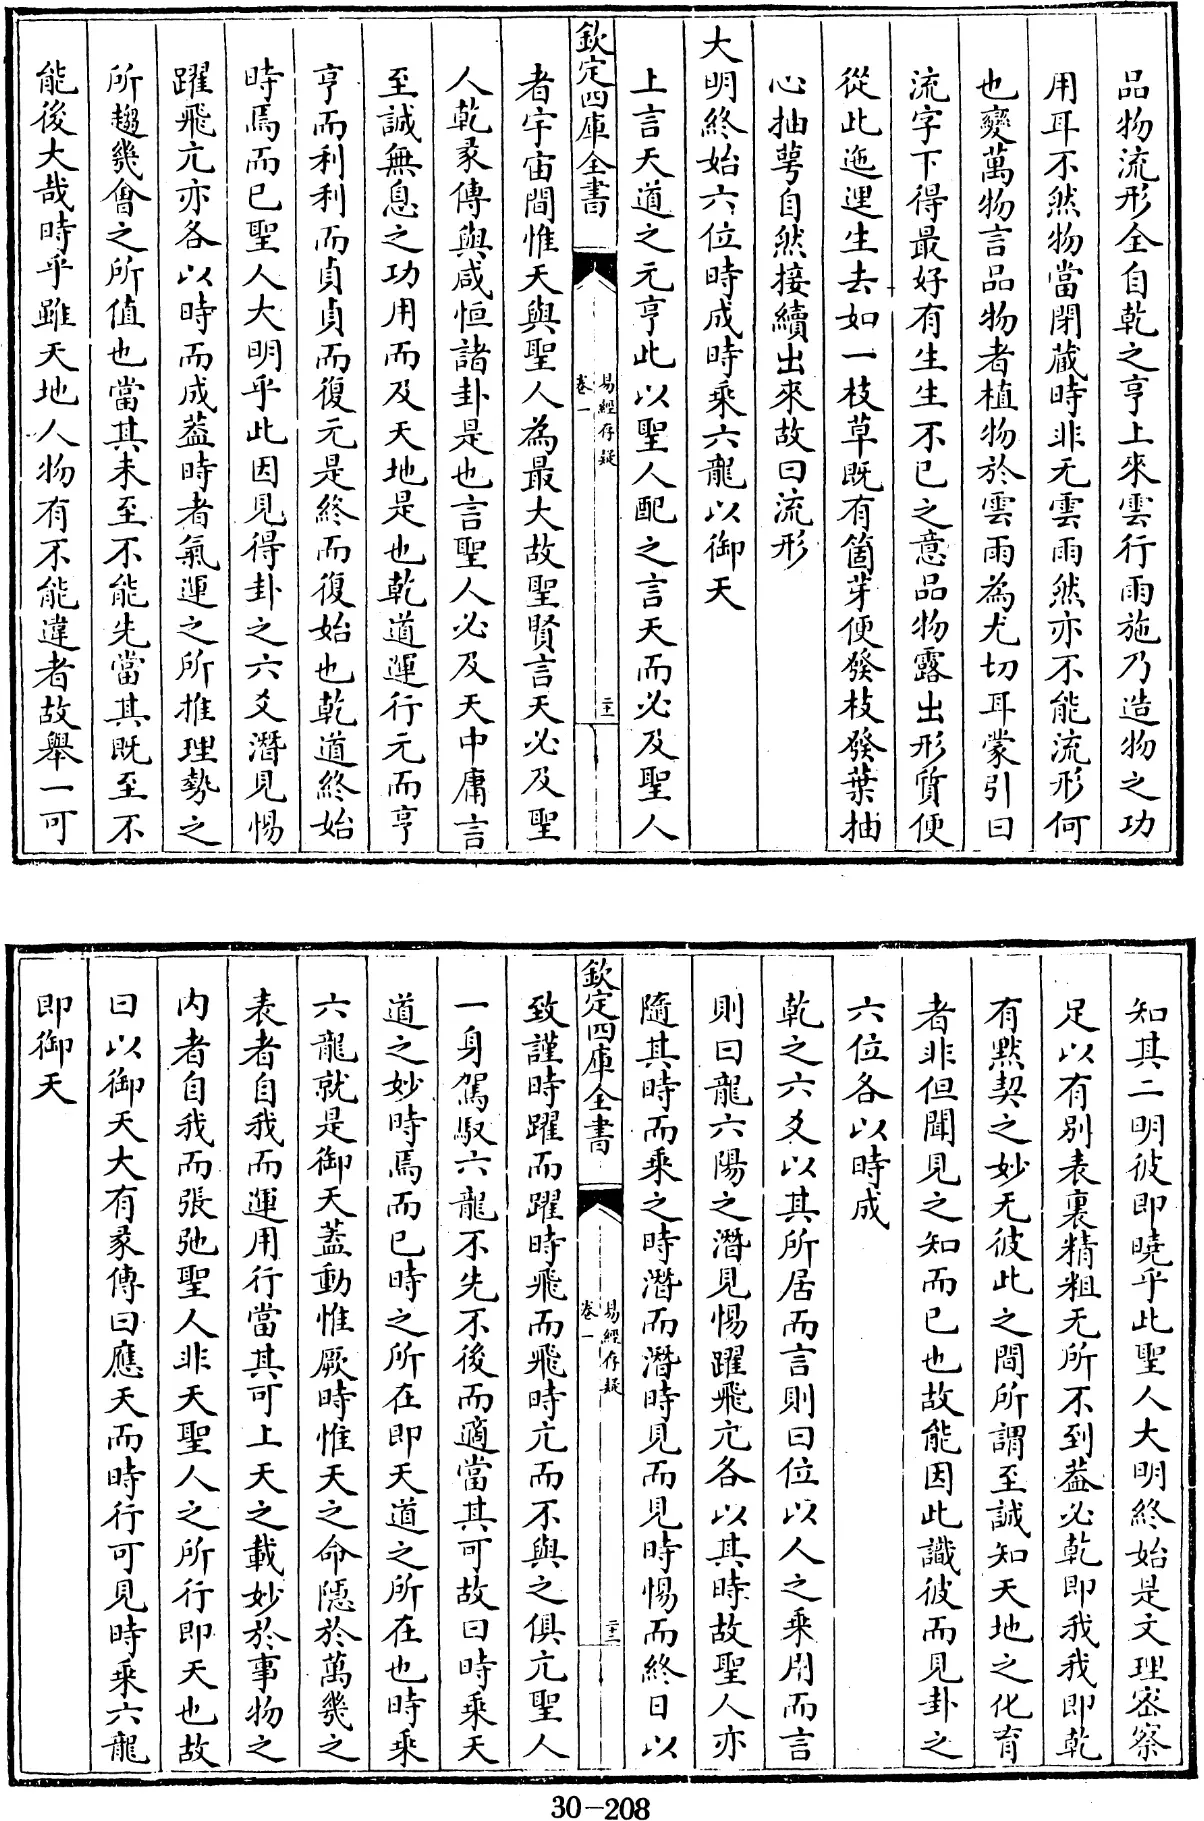 品物流形全自乾之亨上來雲行雨施乃造物之功
用耳不然物當閉蔵時非无雲雨然亦不能流形何
也變萬物言品物者植物於雲雨為尤切耳蒙引曰
流字下得最好有生生不已之意品物露出形質便
從此迤𨓦生去如一枝草既有箇芽便發枝發葉抽
心抽萼自然接續出來故曰流形
大明終始六位時成時乘六龍以御天
上言天道之元亨此以聖人配之言天而必及聖人
欽定四庫全書
易經存疑
卷一
二十一
者宇宙間惟天與聖人為最大故聖賢言天必及聖
人乾彖傳與咸恒諸卦是也言聖人必及天中庸言
至誠無息之功用而及天地是也乾道運行元而亨
亨而利利而貞貞而復元是終而復始也乾道終始
時焉而已聖人大明乎此因見得卦之六爻潛見惕
躍飛亢亦各以時而成葢時者氣運之所推理勢之
所趨幾會之所值也當其未至不能先當其既至不
能後大哉時乎雖天地人物有不能違者故舉一可
知其二明彼即曉乎此聖人大明終始是文理宻察
足以有别表裏精粗无所不到葢必乾即我我即乾
有默契之妙无彼此之間所謂至誠知天地之化育
者非但聞見之知而已也故能因此識彼而見卦之
六位各以時成
乾之六爻以其所居而言則曰位以人之乘用而言
則曰龍六陽之潛見惕躍飛亢各以其時故聖人亦
隨其時而乘之時潛而潛時見而見時惕而終日以
欽定四庫全書
易經存疑
卷一
二十二
致謹時躍而躍時飛而飛時亢而不與之俱亢聖人
一身駕馭六龍不先不後而適當其可故曰時乘天
道之妙時焉而已時之所在即天道之所在也時乘
六龍就是御天蓋動惟厥時惟天之命隱於萬幾之
表者自我而運用行當其可上天之載妙於事物之
内者自我而張弛聖人非天聖人之所行即天也故
曰以御天大有彖傳曰應天而時行可見時乘六龍
即御天
30-208